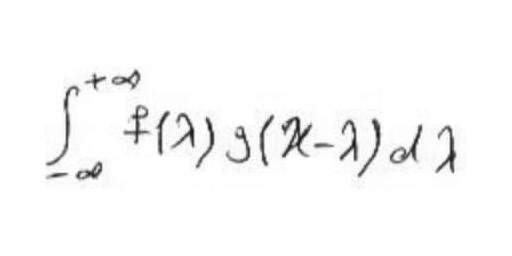 ∫_{-∞}^{+∞} f(λ) g(x-λ) dλ